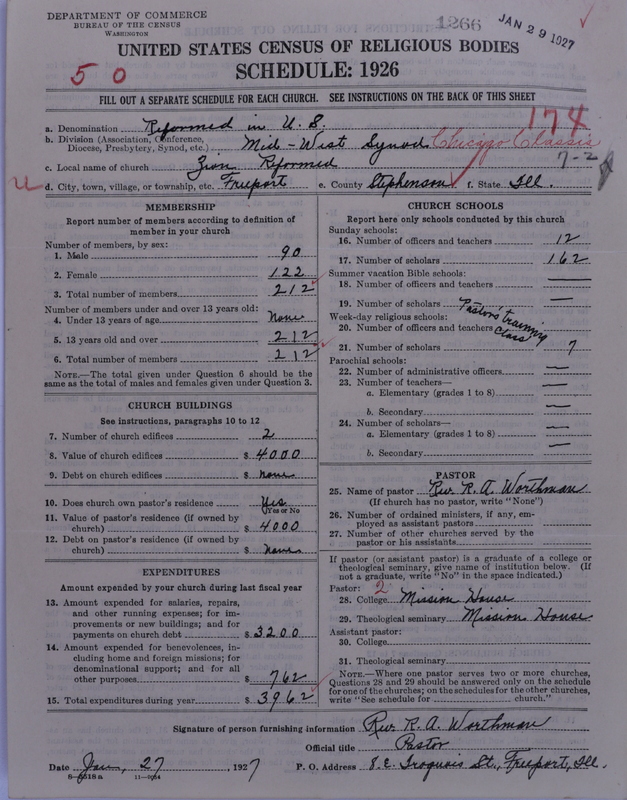 DEPARTMENT OF COMMERCE
BUREAU OF THE CENSUS
WASHINGTON
1266
JAN 29 1927
UNITED STATES CENSUS OF RELIGIOUS BODIES
5 0
SCHEDULE: 1926
FILL OUT A SEPARATE SCHEDULE FOR EACH CHURCH. SEE INSTRUCTIONS ON THE BACK OF THIS SHEET
174
a. Denomination Reformed in U. S.
b. Division (Association, Conference, Diocese, Presbytery, Synod, etc.) Mid-West Synod Chicago Classis
7-2
c. Local name of church Zion Reformed
d. City, town, village, or township, etc. Freeport e. County Stephenson f. State Ill.
MEMBERSHIP
Report number of members according to definition of
member in your church
Number of members, by sex:
1. Male 90
2. Female 122
3. Total number of members 212
Number of members under and over 13 years old:
4. Under 13 years of age None
5. 13 years old and over 212
6. Total number of members 212
NOTE.—The total given under Question 6 should be the
same as the total of males and females given under Question 3.
CHURCH BUILDINGS
See instructions, paragraphs 10 to 12
7. Number of church edifices 2
8. Value of church edifices $ 4000
9. Debt on church edifices $ none
10. Does church own pastor's residence Yes
(Yes or No)
11. Value of pastor's residence (if owned by
church) $ 4000
12. Debt on pastor's residence (if owned by
church) $ none
EXPENDITURES
Amount expended by your church during last fiscal year
13. Amount expended for salaries, repairs,
and other running expenses; for im-
provements or new buildings; and for
payments on church debt $ 3200
14. Amount expended for benevolences, in-
cluding home and foreign missions; for
denominational support; and for all
other purposes $ 762
15. Total expenditures during year $ 3962
CHURCH SCHOOLS
Report here only schools conducted by this church
Sunday schools:
16. Number of officers and teachers 12
17. Number of scholars 162
Summer vacation Bible schools:
18. Number of officers and teachers —
19. Number of scholars —
Week-day religious schools: Pastors' training
20. Number of officers and teachers class
21. Number of scholars 7
Parochial schools:
22. Number of administrative officers —
23. Number of teachers—
a. Elementary (grades 1 to 8) —
b. Secondary —
24. Number of scholars—
a. Elementary (grades 1 to 8) —
b. Secondary —
PASTOR
25. Name of pastor Rev R. A. Worthman
(If church has no pastor, write "None")
26. Number of ordained ministers, if any, em-
ployed as assistant pastors
27. Number of other churches served by the
pastor or his assistants
If pastor (or assistant pastor) is a graduate of a college or
theological seminary, give name of institution below. (If
not a graduate, write "No" in the space indicated.)
Pastor: 2
28. College Mission House
29. Theological seminary Mission House
Assistant pastor:
30. College
31. Theological seminary
NOTE.—Where one pastor serves two or more churches,
Questions 28 and 29 should be answered only on the schedule
for one of the churches; on the schedules for the other churches,
write "See schedule for church."
Signature of person furnishing information Rev R. A. Worthman
Official title Pastor
Date Jan, 27 1927 P. O. Address 8. E. Iroquois St., Freeport, Ill.
11—9084